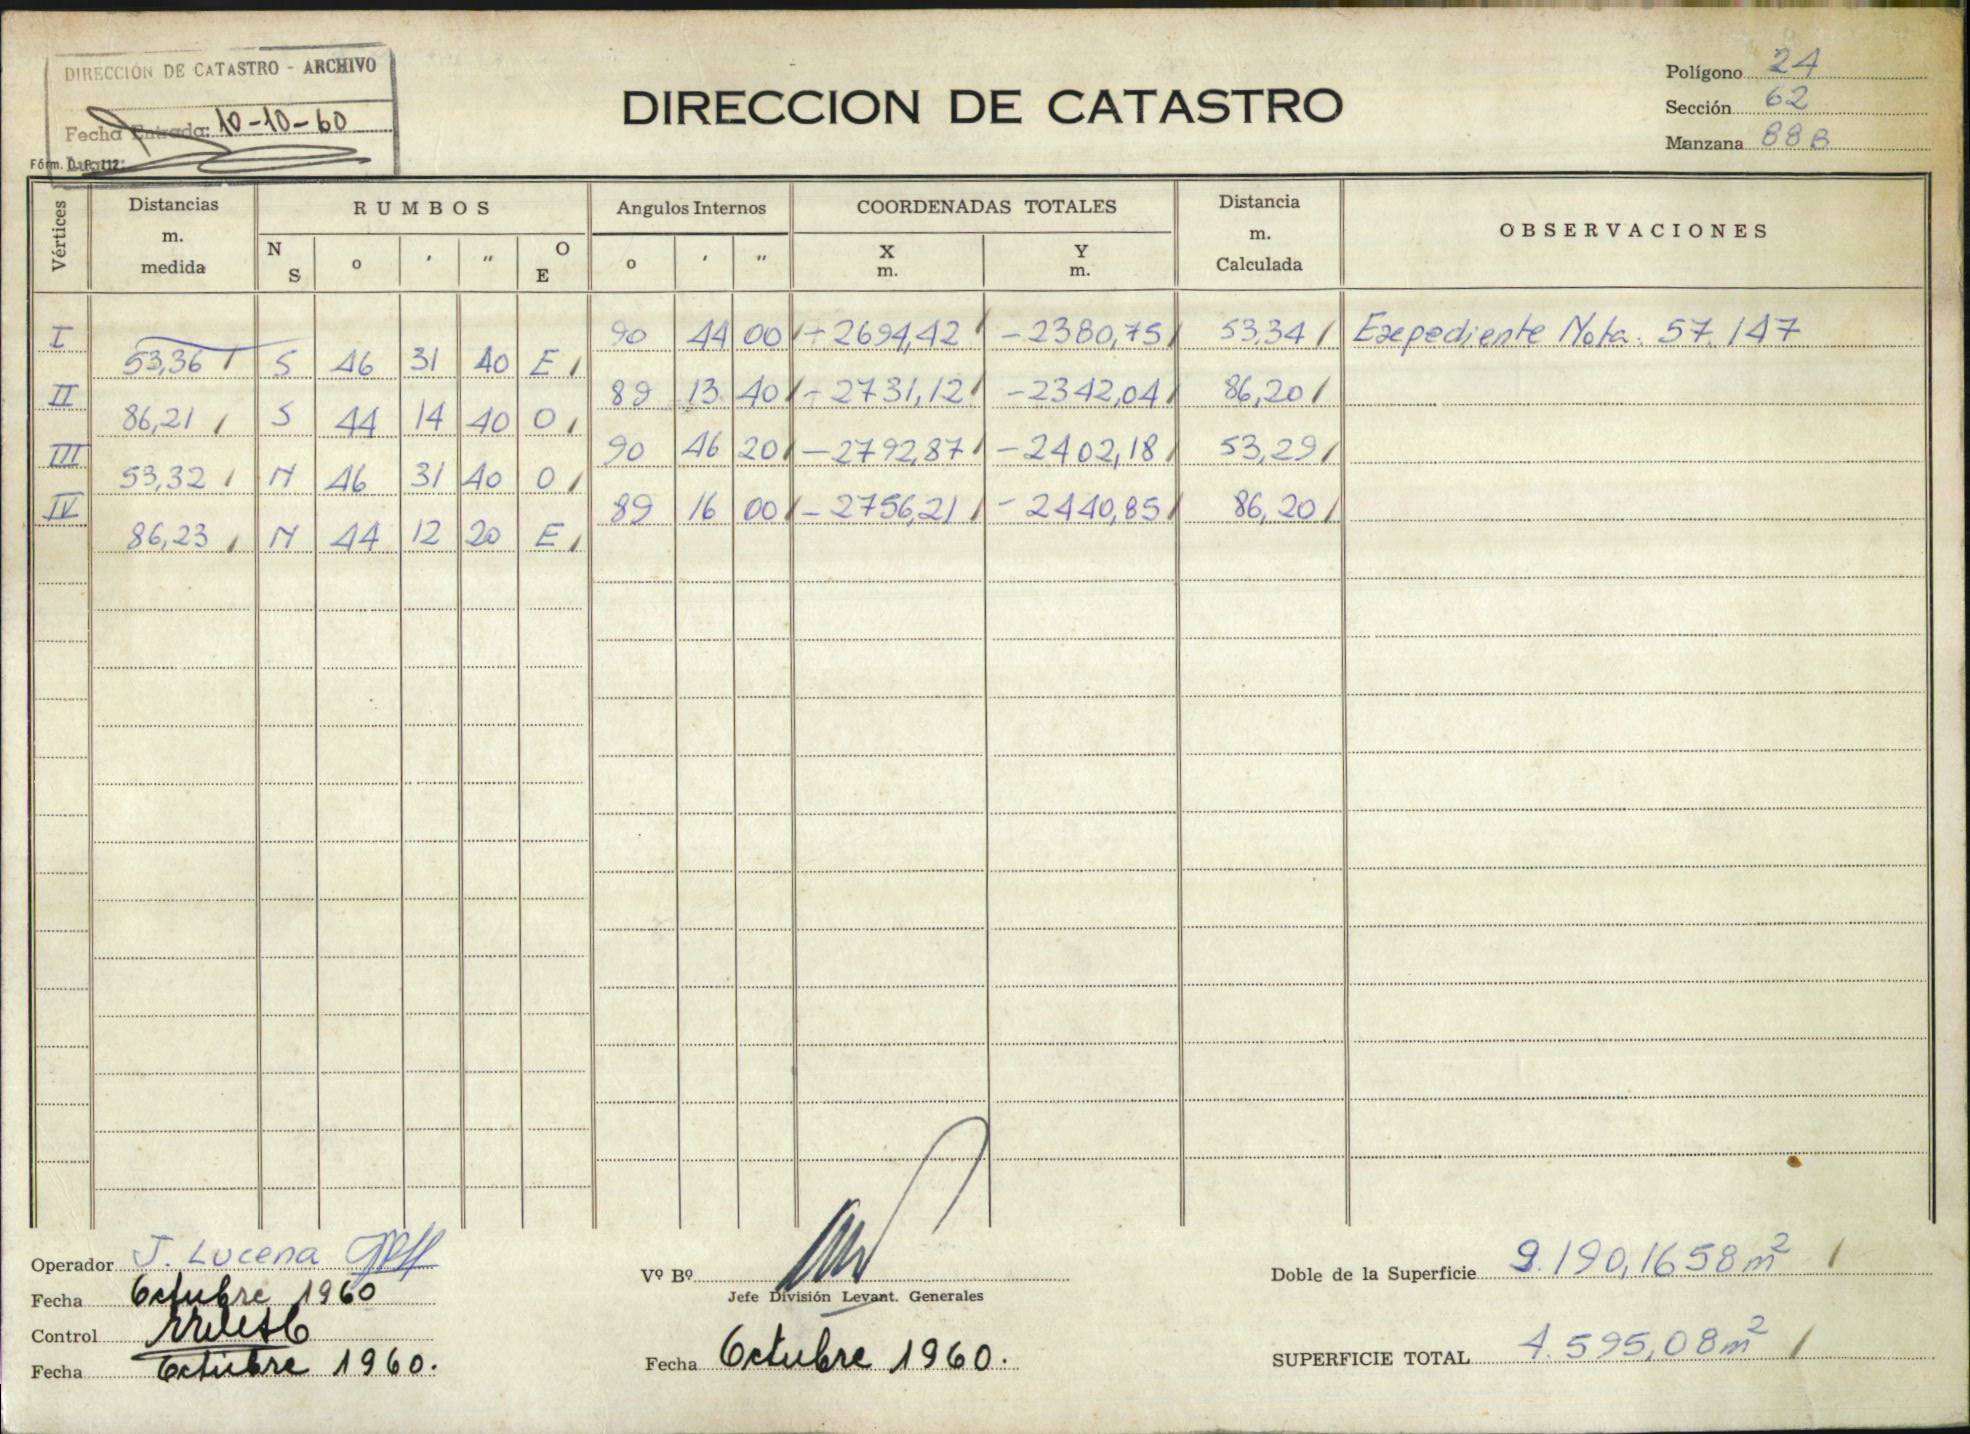 DIRECCIÓN DE CATASTRO - ARCHIVO
Fecha Entrada: 10-10-60
Fórm. D. P. 112
Lugar:
DIRECCION DE CATASTRO
Polígono 24
Sección 62
Manzana 88 B
Vértices
Distancias m. medida
RUMBOS
N S o ' " O E
Angulos Internos
o ' "
COORDENADAS TOTALES
X m. Y m.
Distancia m. Calculada
OBSERVACIONES
I 90 44 00 -2694,42 -2380,75 53,34 Expediente Nota. 57.147
53,36 S 46 31 40 E
II 89 13 40 -2731,12 -2342,04 86,20
86,21 S 44 14 40 O
III 90 46 20 -2792,87 -2402,18 53,29
53,32 N 46 31 40 O
IV 89 16 00 -2756,21 -2440,85 86,20
86,23 N 44 12 20 E
Operador J. Lucena
Fecha Octubre 1960
Control
Fecha Octubre 1960.
Vº Bº
Jefe División Levant. Generales
Fecha Octubre 1960.
Doble de la Superficie 9.190,1658 m²
SUPERFICIE TOTAL 4.595,08 m²